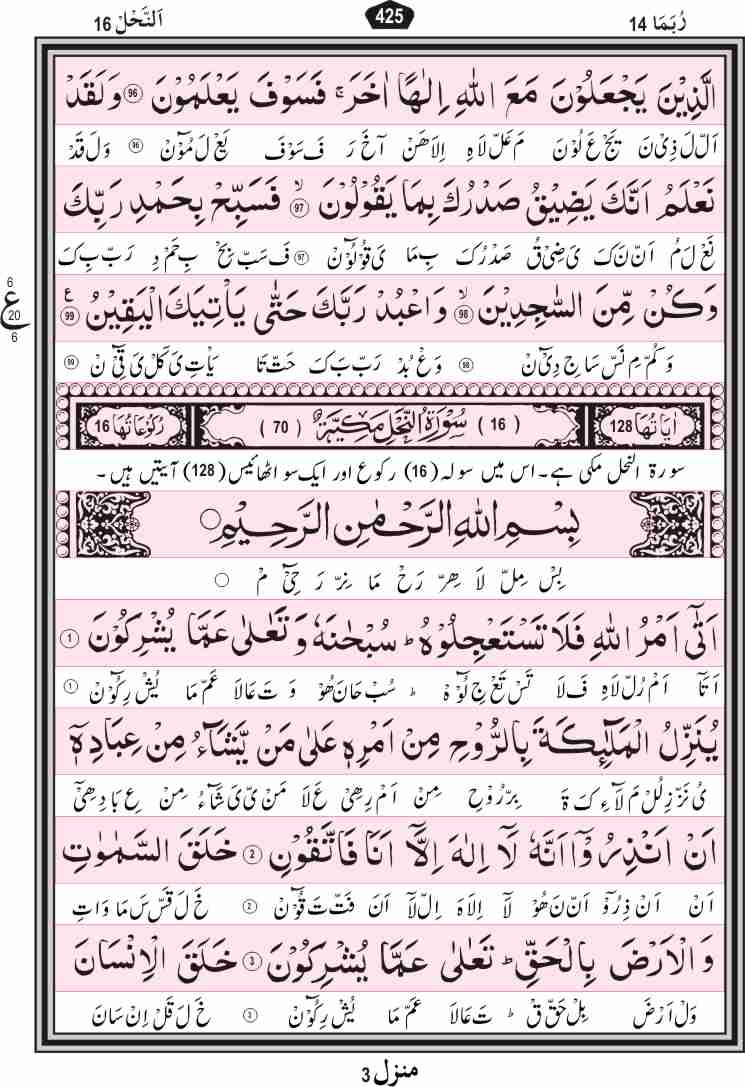 رُبَمَا 14
425
اَلنَّحْل 16
الَّذِيْنَ يَجْعَلُوْنَ مَعَ اللّٰهِ اِلٰهًا اٰخَرَ ۚ فَسَوْفَ يَعْلَمُوْنَ ﴿96﴾ وَلَقَدْ
اَلْ لَ ذِیْ نَ یَجْ عَ لُوْ نَ مَ عَلْ لَاهِ اِلَاهَنْ آخَ رَ فَ سَوْفَ یَعْ لَ مُوْٓنْ 96 وَ لَ قَدْ
نَعْلَمُ اَنَّكَ يَضِيْقُ صَدْرُكَ بِمَا يَقُوْلُوْنَ ۙ﴿97﴾ فَسَبِّحْ بِحَمْدِ رَبِّكَ
نَعْ لَ مُ اَنْ نَ كَ یَ ضِیْ قُ صَدْرُكَ بِ مَا یَ قُوْلُوْٓنْ 97 فَ سَبْ بِحْ بِ حَمْ دِ رَبْ بِ كَ
وَكُنْ مِّنَ السّٰجِدِيْنَ ۙ﴿98﴾ وَاعْبُدْ رَبَّكَ حَتّٰى يَاْتِيَكَ الْيَقِيْنُ ﴿99﴾ ع
6
ع
20
6
وَ كُمْ مِ نَسْ سَا جِ دِیْٓ نْ 98 وَعْ بُدْ رَبْ بَ كَ حَتْ تَا یَاْتِ یَ كَلْ یَ قِیْٓ نْ 99
اٰيَاتُهَا 128
(16) سُوْرَةُ النَّحْلِ مَكِّيَّةٌ (70)
رُكُوْعَاتُهَا 16
سورۃ النحل مکی ہے۔ اس میں سولہ (16) رکوع اور ایک سو اٹھائیس (128) آیتیں ہیں۔
بِسْمِ اللّٰهِ الرَّحْمٰنِ الرَّحِيْمِ
بِسْ مِلْ لَا هِرْ رَحْ مَا نِرْ رَ حِیْٓ مْ
اَتٰٓى اَمْرُ اللّٰهِ فَلَا تَسْتَعْجِلُوْهُ ؕ سُبْحٰنَهٗ وَتَعٰلٰى عَمَّا يُشْرِكُوْنَ ﴿1﴾
اَتَآ اَمْ رُلْ لَاهِ فَ لَا تَسْ تَعْ جِ لُوْٓ ہ ؕ سُبْ حَانَ هُوْ وَ تَ عَالَا عَمْ مَا یُشْ رِكُوْٓنْ 1
يُنَزِّلُ الْمَلٰٓئِكَةَ بِالرُّوْحِ مِنْ اَمْرِهٖ عَلٰى مَنْ يَّشَآءُ مِنْ عِبَادِهٖٓ
یُ نَزْ زِ لُلْ مَ لَآءِ كَ ةَ بِرْ رُوْحِ مِنْ اَمْ رِهِیْ عَ لَا مَنْ یْ یَ شَآءُ مِنْ عِ بَادِهِیْٓ
اَنْ اَنْذِرُوْۤا اَنَّهٗ لَاۤ اِلٰهَ اِلَّاۤ اَنَا فَاتَّقُوْنِ ﴿2﴾ خَلَقَ السَّمٰوٰتِ
اَنْ اَنْ ذِرُوْٓ اَنْ نَ هُوْ لَآ اِلَاهَ اِلْ لَآ اَنَ فَتْ تَ قُوْٓنْ 2 خَ لَ قَسْ سَ مَا وَاتِ
وَالْاَرْضَ بِالْحَقِّ ؕ تَعٰلٰى عَمَّا يُشْرِكُوْنَ ﴿3﴾ خَلَقَ الْاِنْسَانَ
وَلْ اَرْضَ بِلْ حَقْ قْ ؕ تَ عَالَا عَمْ مَا یُشْ رِكُوْٓنْ 3 خَ لَ قَلْ اِنْ سَانَ
منزل 3